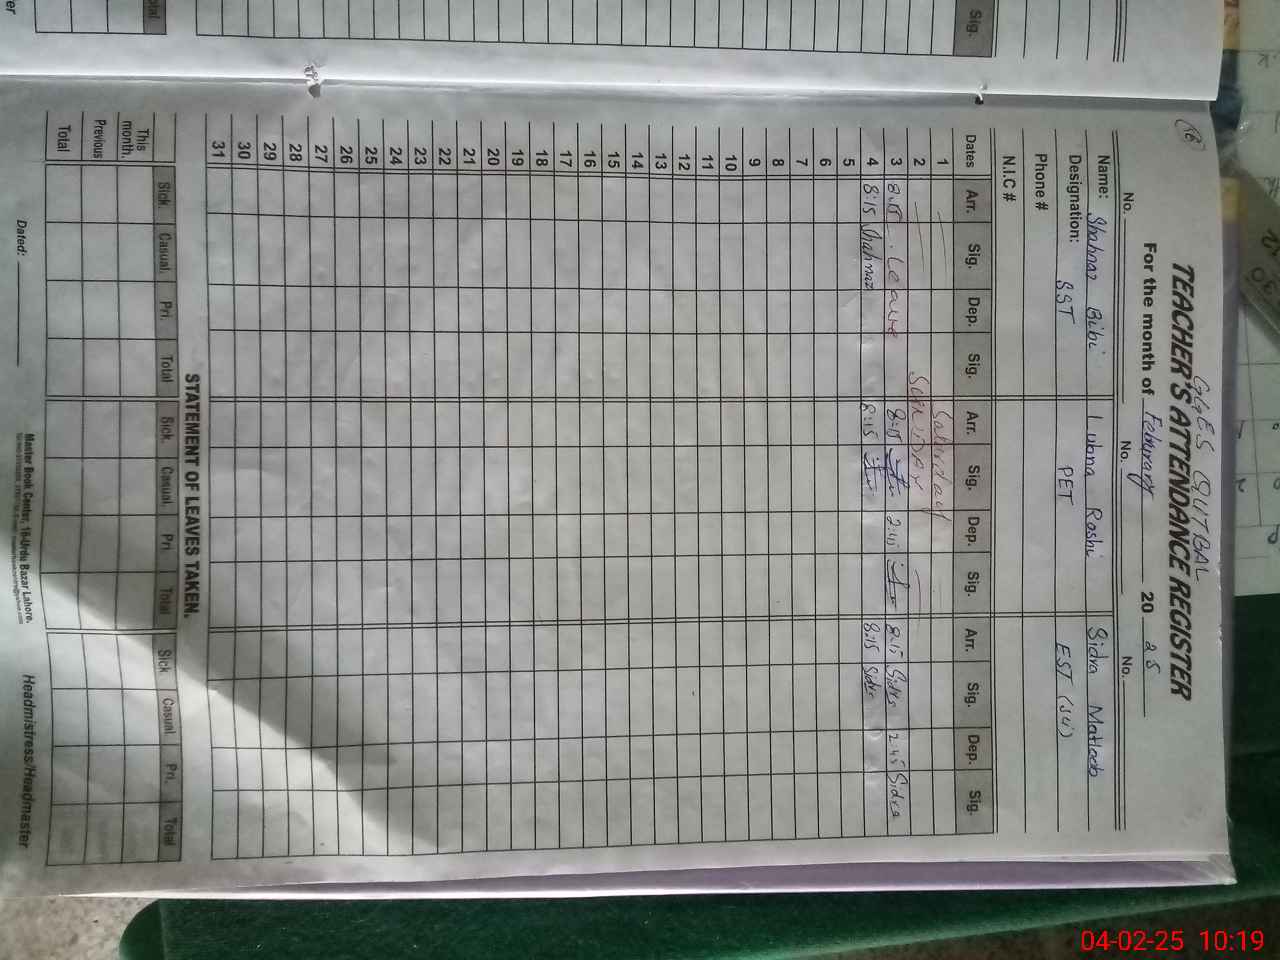 Sig.
16
GGES QUTBAL
TEACHER'S ATTENDANCE REGISTER
For the month of February 20 25
No. No. No.
Name: Shahnaz Bibi Lubna Roshi Sidra Matloob
Designation: SST PET EST (Sci)
Phone #
N.I.C #
Dates Arr. Sig. Dep. Sig. Arr. Sig. Dep. Sig. Arr. Sig. Dep. Sig.
1 Saturday
2 SUNDAY
3 8:15 Leave 8:15 2:45 8:15 Sidra 2:45 Sidra
4 8:15 Shahnaz 8:15 8:15 Sidra
5
6
7
8
9
10
11
12
13
14
15
16
17
18
19
20
21
22
23
24
25
26
27
28
29
30
31
STATEMENT OF LEAVES TAKEN.
Sick. Casual. Pri. Total Sick. Casual. Pri Total Sick Casual Pri. Total
This month.
Previous
Total
Dated:
Master Book Center, 16-Urdu Bazar Lahore.
Headmistress/Headmaster
04-02-25 10:19